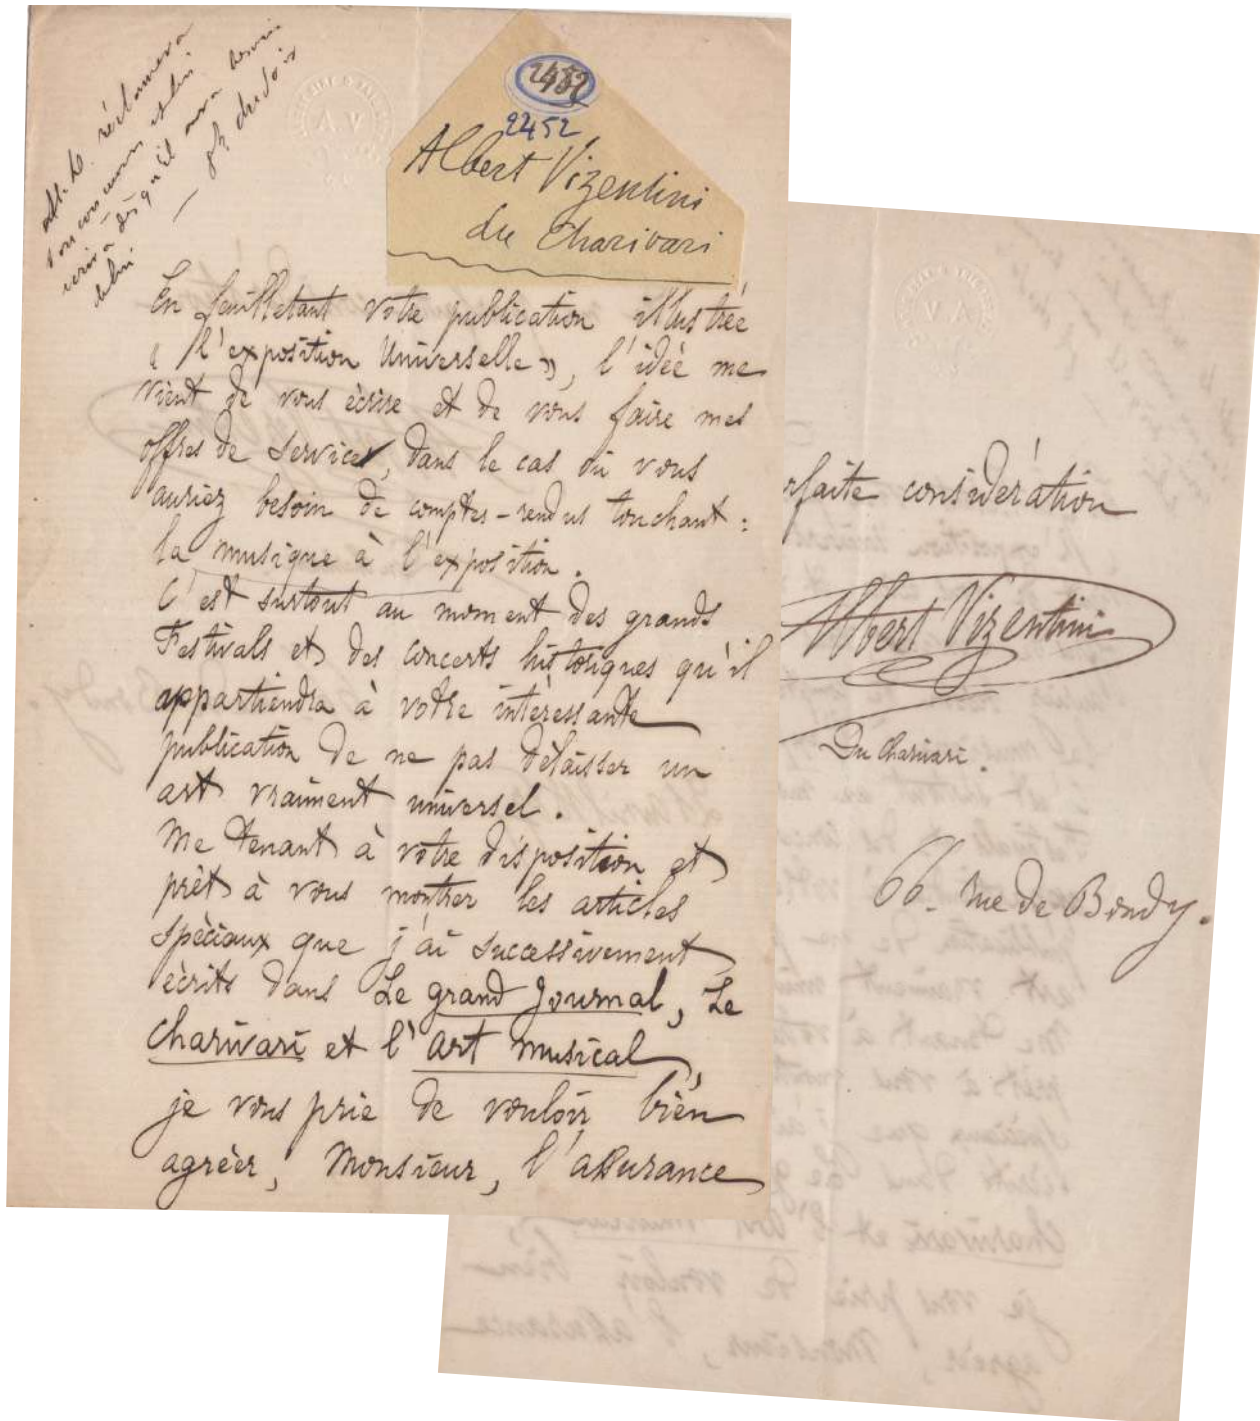 réclamera
dès qu'il aura besoin
2452
2452
Albert Vizentini
du Charivari
En feuilletant votre publication illustrée
« l'exposition Universelle », l'idée me
vient de vous écrire et de vous faire mes
offres de services, dans le cas où vous
auriez besoin de comptes-rendus touchant :
la musique à l'exposition.
C'est surtout au moment des grands
Festivals et des concerts historiques qu'il
appartiendra à votre intéressante
publication de ne pas délaisser un
art vraiment universel.
Me tenant à votre disposition et
prêt à vous montrer les articles
spéciaux que j'ai successivement
écrits dans Le grand Journal, Le
Charivari et l'art musical,
je vous prie de vouloir bien
agréer, Monsieur, l'assurance
rfaite considération
Albert Vizentini
Du Charivari.
66. rue de Bondy.